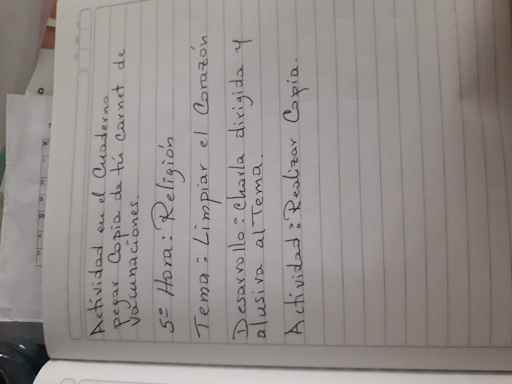 Actividad en el Cuaderno
pegar Copia de tú Carnet de
Vacunaciones.
5º Hora: Religión
Tema: Limpiar el Corazón
Desarrollo: Charla dirigida y
alusiva al Tema.
Actividad: Realizar Copia.